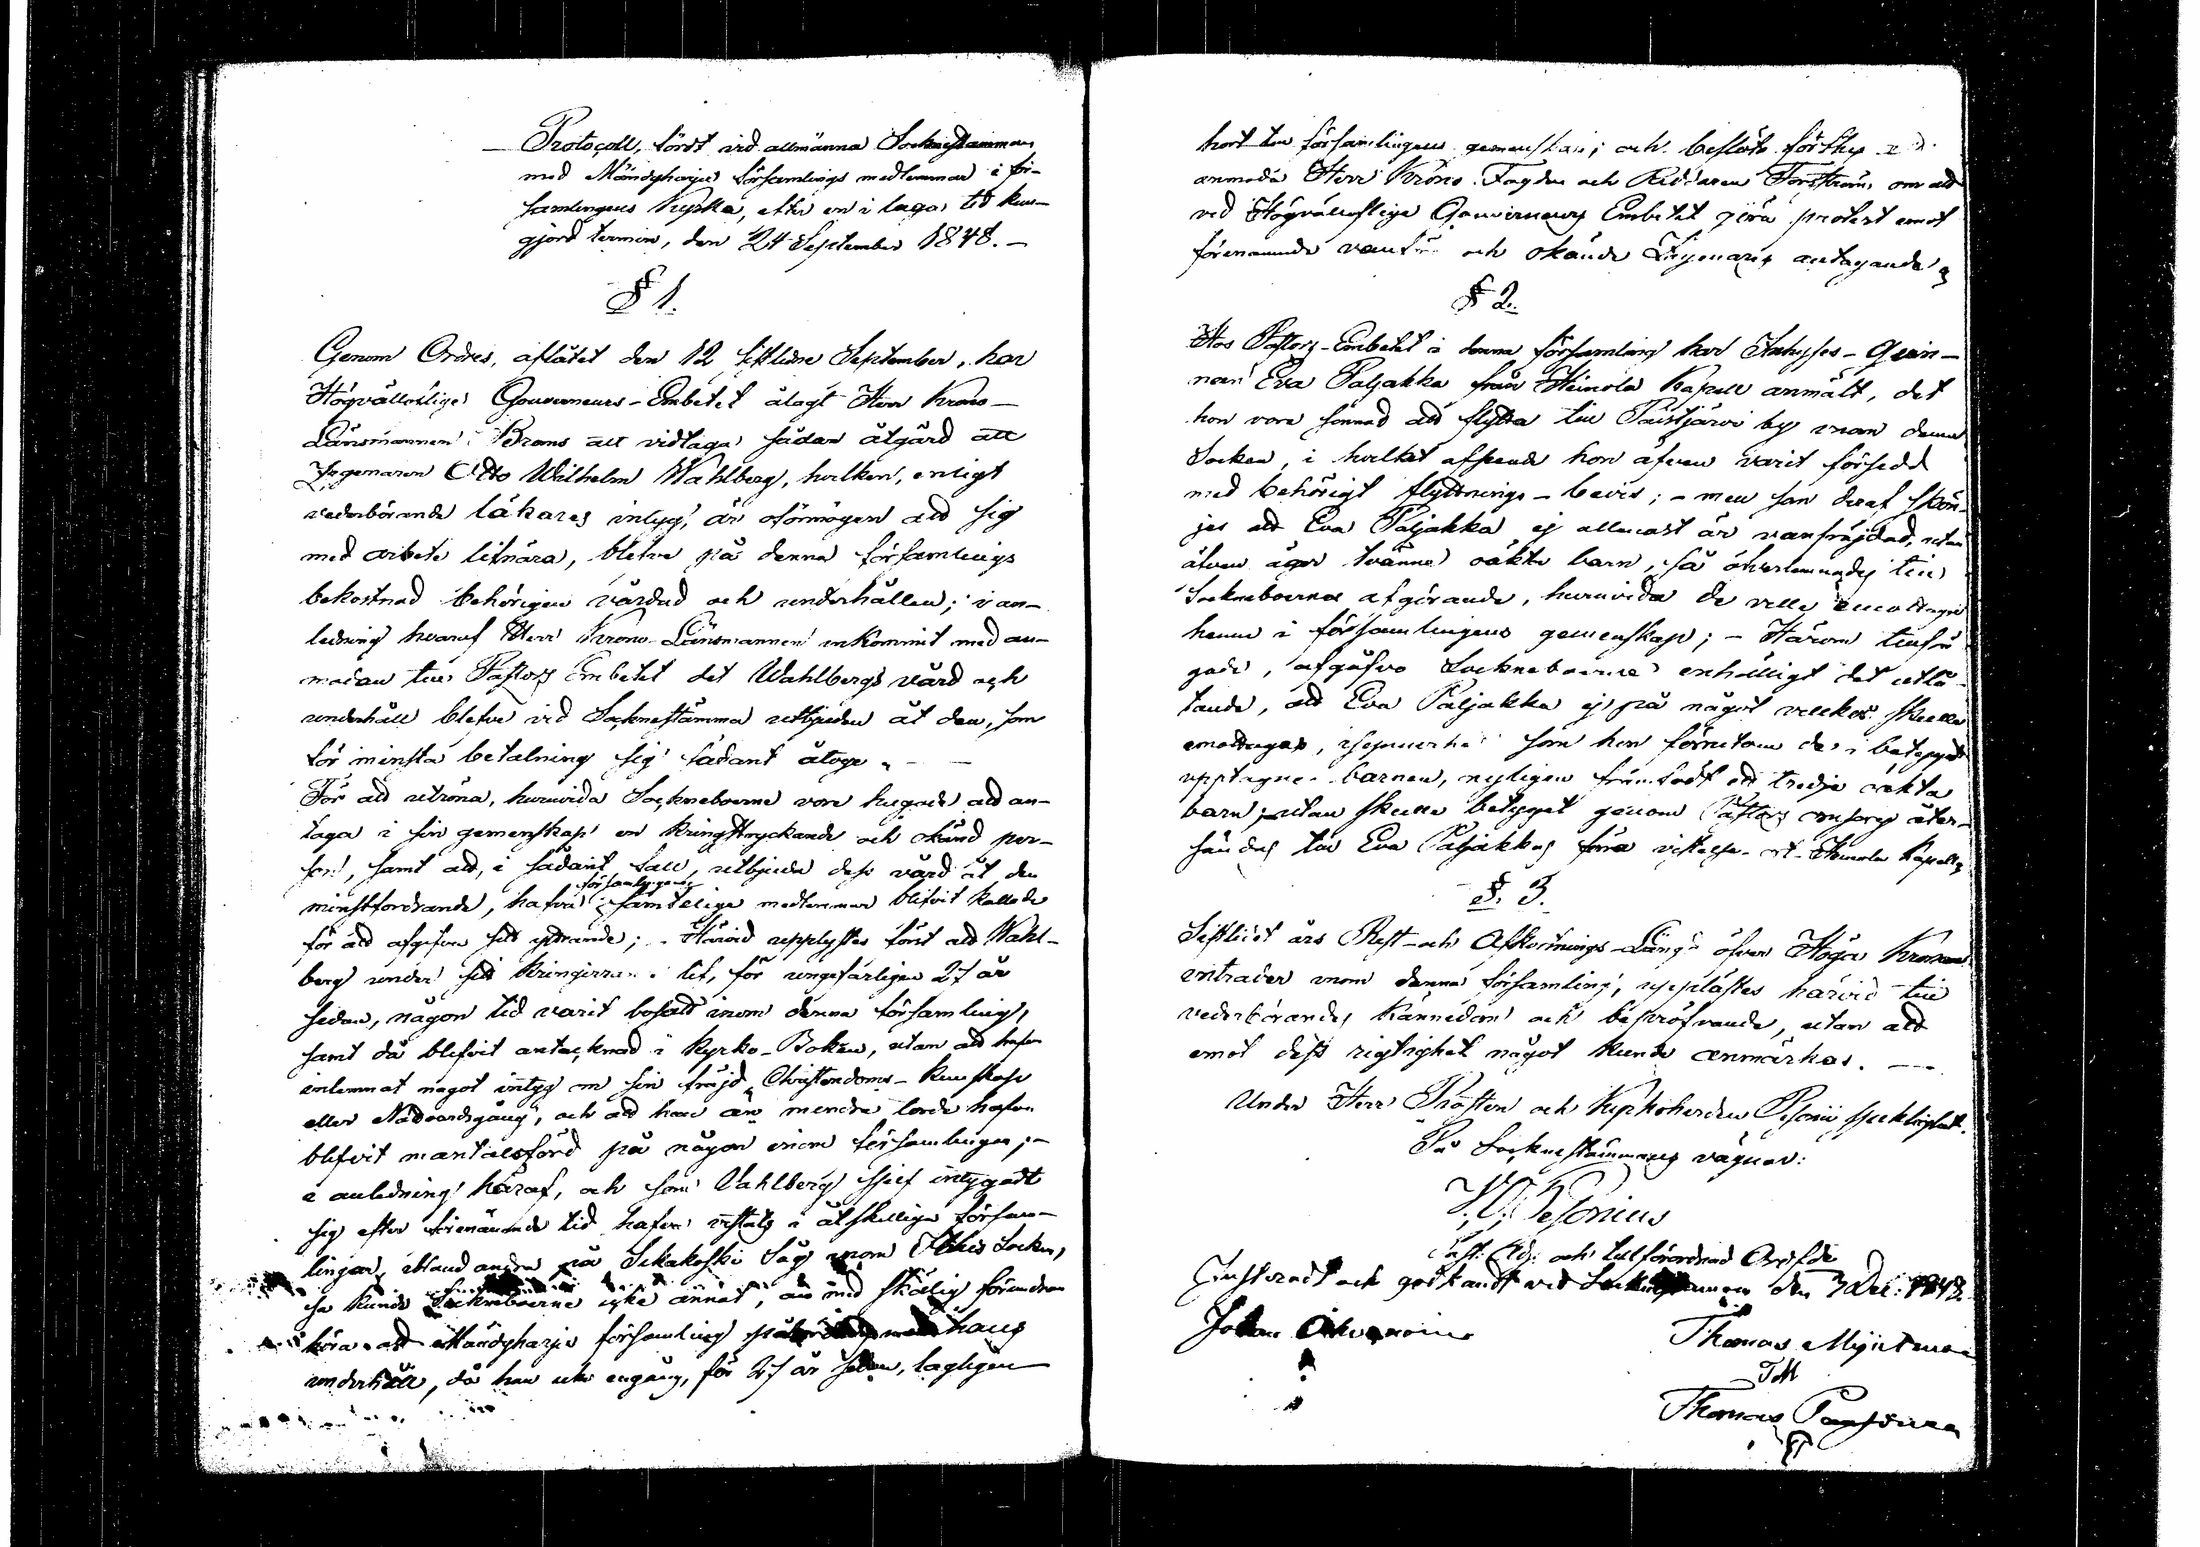 Protocoll, fördt vid allmänna Socknestämman
med Mändyharju församlings medlemmar i för-
samlingens Kyrka, efter en i laga tid kun-
gjord termin, den 24 September 1848. -
§ 1.
Genom Ordres, aflåtet den 12 sistlidne September, har
Högvällofliga Gouverneurs-Embetet ålagt Herr Krono-
Länsmannen Brams att vidtaga sådan åtgärd att
Zigenaren Otto Wilhelm Wahlberg, hvilken, enligt
vederbörande läkares intyg, är oförmögen att sig
med arbete lifnära, blefve på denna församlings
bekostnad behörigen vårdad och underhållen; i an-
ledning hvaraf Herr Krono Länsmannen inkommit med an-
modan till Pastors Embetet det Wahlbergs vård och
underhåll blefve vid Socknestämma utbjuden åt den, som
för minsta betalning sig sådant åtoge. -
För att utröna, huruvida Sockneboerne vore hugade att an-
taga i sin gemenskap en kringstrykande och okänd per-
son, samt att, i sådant fall, utbjuda dess vård åt den
minstfordrande, hafva församlingens samtelige medlemmar blifvit kallade
för att afgifva sitt yttrande; - Härvid upplystes först att Wahl-
berg under sitt kringirrande lif, för ungefärligen 27 år
sedan, någon tid varit bosatt inom denna församling,
samt då blifvit antecknad i Kyrko-Boken, utan att hafva
inlemnat något intyg om sin fräjd, Christendoms-kunskap
eller Nådvardsgång, och att han än mindre lärde hafva
blifvit mantalsförd på någon inom församlingen; -
i anledning häraf, och som Wahlberg sjelf intygadt
sig efter förenämnde tid hafva vistats i åtskilliga försam-
lingar, ibland andra på Sukakoski Såg inom Ithis Socken,
så kunde Sockneboerne icke annat, än med skälig förundran
höra att Mändyharju församling hans
underhåll, då han icke engång, för 27 år sedan, lagligen
hört till församlingens gemenskap; och beslöts förthy
anmoda Herr Krono Fogden och Riddaren Forsström, om att
vid Högvällofliga Gouverneurs Embetet göra protest emot
förenämnde och okände Zigenares antagande
§ 2.
Hos Pastors-Embetet i denna församling har Inhyses-Qvin-
nan Eva Paljakka från Heinola Kapell anmält, det
hon vore sinnad att flytta till Paistjärvi by inom denna
Socken, i hvilket afseende hon äfven varit försedd
med behörigt flyttnings-bevis; - men som deraf skön-
jes att Eva Paljakka ej allenast är vanfräjdad, utan
äfven äger tvänne oäkta barn, så öfverlemnades till
Sockneboernes afgörande, huruvida de ville emottaga
henne i församlingens gemenskap; - Härom tillfrå-
gade, afgåfvo Sockneboerne enhälligt det utlå-
tande, att Eva Paljakka ej på något vilkor skulle
emottagas, som hon förutom de i betyget
upptagne barnen, nyligen framfödt ett tredje oäkta
barn; utan skulle betyget genom Pastors omsorg åter-
sändas till Eva Paljakkas förra vistelse-ort Heinola Kapell
§. 3.
Sistlidet års Rest- och Afkortnings-Längd öfver Höga Kronans
intrader inom denna församling, upplästes härvid till
vederbörandes kännedom och bepröfvande, utan att
emot dess rigtighet något kunde anmärkas. -
Under Herr Prosten och Kyrkoherden Pesonii sjuklighet.
På Sockenstämmans vägnar:
Pesonius
Past. Adj: och tillförordnad Ordfde
Justeradt och godkändt vid Sockenstämman den 3 Dec: 1848.
Johan
Thomas
Thomas